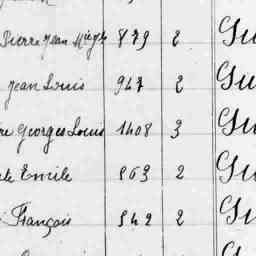 Pierre Jean 879 2 Gu
Jean Louis 947 2 Gu
Georges Louis 1408 3 Gu
Emile 863 2 Gu
François 542 2 Gu